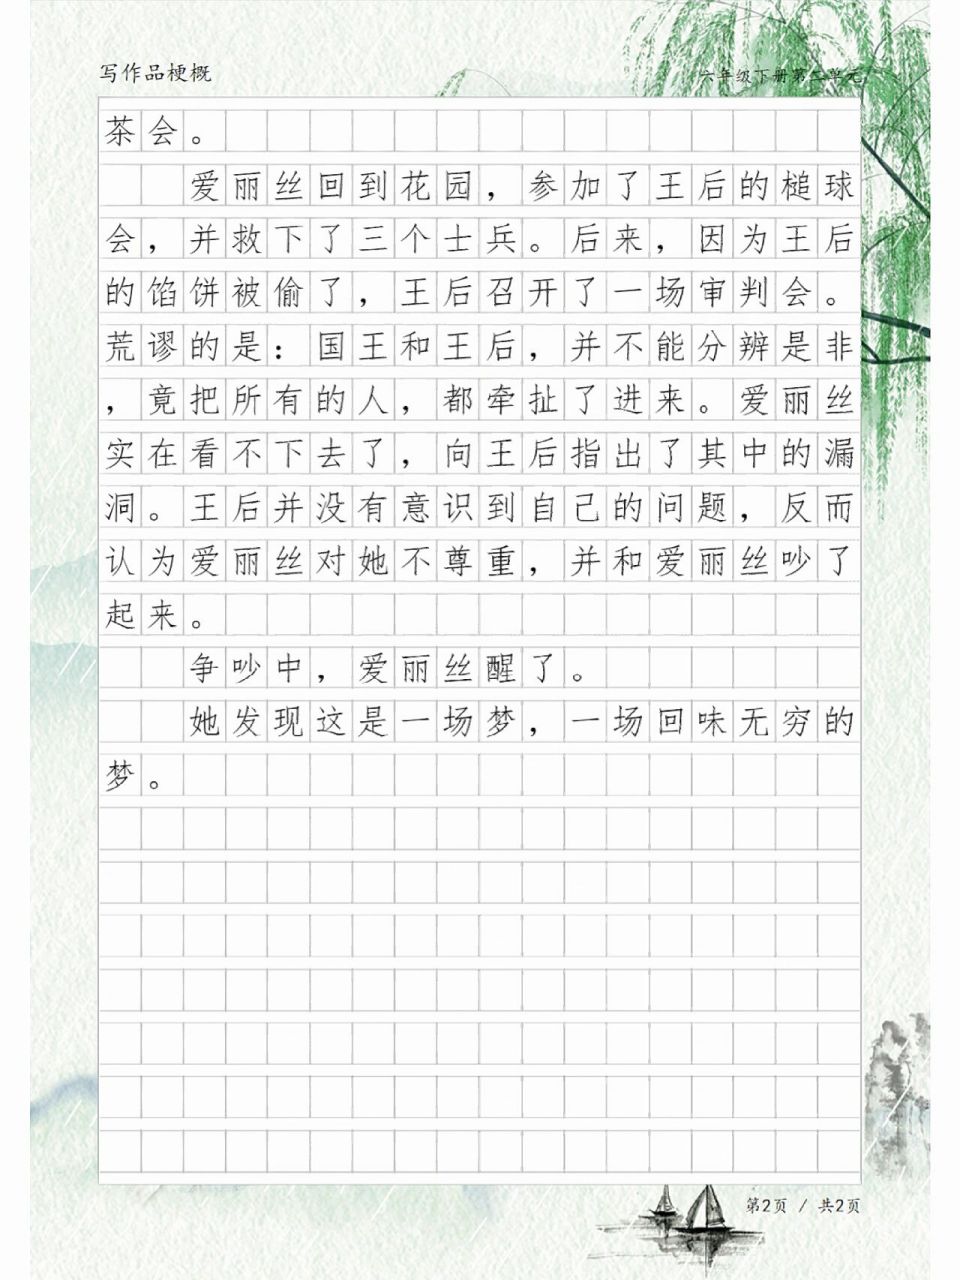 写作品梗概
六年级下册第二单元
茶会。
爱丽丝回到花园，参加了王后的槌球
会，并救下了三个士兵。后来，因为王后
的馅饼被偷了，王后召开了一场审判会。
荒谬的是：国王和王后，并不能分辨是非
，竟把所有的人，都牵扯了进来。爱丽丝
实在看不下去了，向王后指出了其中的漏
洞。王后并没有意识到自己的问题，反而
认为爱丽丝对她不尊重，并和爱丽丝吵了
起来。
争吵中，爱丽丝醒了。
她发现这是一场梦，一场回味无穷的
梦。
第2页 / 共2页